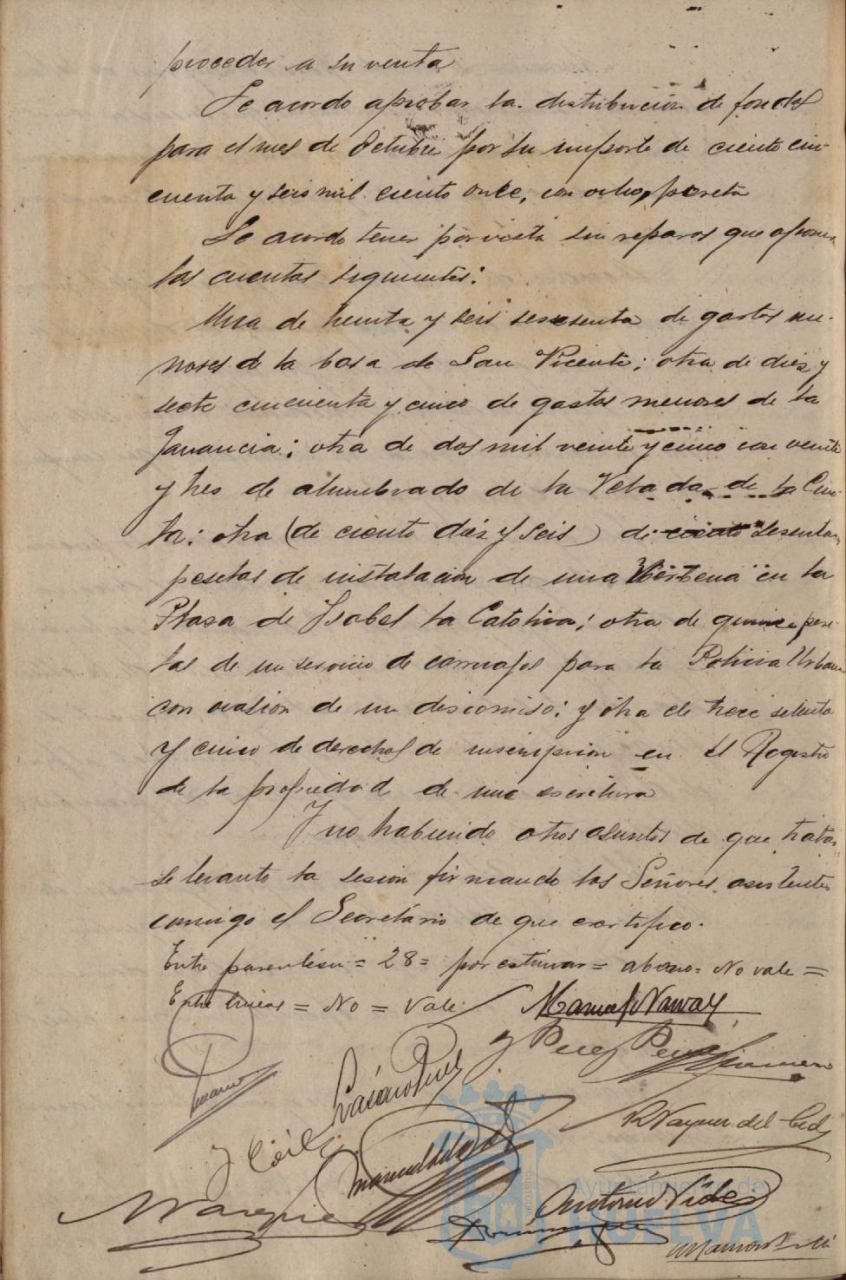 proceder a su venta
Se acordo aprobar la distribucion de fondos
para el mes de Octubre por su importe de ciento cin-
cuenta y seis mil ciento once, con ocho, peseta
Se acordo tener por vista sin reparos que oponer
las cuentas siguientes:
Una de treinta y seis sesenta de gastos me-
nores de la casa de San Vicente; otra de diez y
siete cincuenta y cinco de gastos menores de la
; otra de dos mil veinte y cinco con veinte
y tres de alumbrado de la Velada de la Cin-
ta; otra (de ciento diez y seis) de ciento sesenta
pesetas de instalacion de una Verbena en la
Plaza de Isabel la Catolica; otra de quince pese-
tas de un servicio de carruajes para la Policia Urbana
con ocasion de un descomiso; y otra de trece setenta
y cinco de derechos de inscripcion en el Registro
de la propiedad de una escritura
Y no habiendo otros asuntos de que tratar
se levanto la sesion firmando los Señores asistentes
conmigo el Secretario de que certifico.
Entre parentesis = 28 = por estimar = abono = No vale =
Entre lineas = No = Vale.
Vazquez del Cid
Antonio Vides
Ayuntamiento de
HUELVA